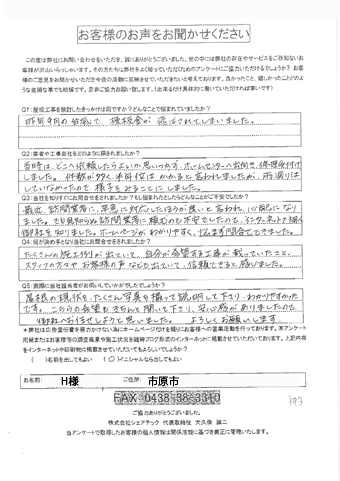 お客様のお声をお聞かせください
この度は弊社にお問い合わせをいただき、誠にありがとうございます。世の中には弊社の存在やサービスをご存知ないお
客様が沢山いらっしゃいます。その方たちに弊社をよく知っていただくためのアンケートにご協力いただけるでしょうか？お客
様のご意見をお聞かせいただき今後の活動に反映させていただきたいと考えております。良かったこと、嬉しかったことどのよ
うな些細な事でも結構です。是非ご協力お願い致します。(出来るだけ具体的に書いていただければ幸いです)
Q1:屋根工事を検討したきっかけは何ですか？どんなことで悩まれていましたか？
昨年9月の台風で、棟瓦が飛ばされてしまいました。
Q2:業者や工事会社をどのように探されましたか？
当時は、どこへ依頼したらよいか思いつかず、ホームセンターへ出向き、修理受付け
しました。件数が多く、半年ほどはかかると言われましたが、雨漏りは
していなかったので様子をみることにしました。
Q3:当社を知りすぐにお問合せをされましたか？もし悩まれたとしたらどんなことがご不安でしたか？
最近、訪問業者に、早急に対応したほうが良いと言われ、心配になり
ました。でも見知らぬ訪問業者に頼むのも不安でしたので、インターネットで
御社を知りました。ホームページがわかりやすく、悩まず問合せできました。
Q4:何が決め手となり当社にお問合せをされましたか？
たくさんの施工例が出ていて、自分が希望する工事が載っていたこと。
スタッフの方々やお客様の声なども出ていて、信頼できると感じました。
Q5:実際に当社担当者がお伺いしていかがでしたでしょうか？
屋根の現状をたくさん写真を撮って説明して下さり、わかりやすかった
です。こちらの希望もきちんと聞いて下さり、安心感がありましたので
御社へお任せしようと思いました。 よろしくお願いします。
※弊社は広告宣伝費を掛けない為にホームページだけを頼りにお客様への営業活動を行っております。本アンケート
用紙またはお客様等の調査風景や施工状況を随時ブログ形式のインターネットに掲載させていただいております。上記内容
をインターネットや印刷物に掲載させていただいてもよろしいでしょうか？
( )名前を出してもよい (○)イニシャルなら出してもよい
お名前: H様 ご住所: 市原市
FAX 0438-38-3310
ご協力ありがとうございました。
株式会社シェアテック 代表取締役 大久保 誠二
当アンケートで取得したお客様の個人情報は関係法規に基づき厳正に管理いたします。